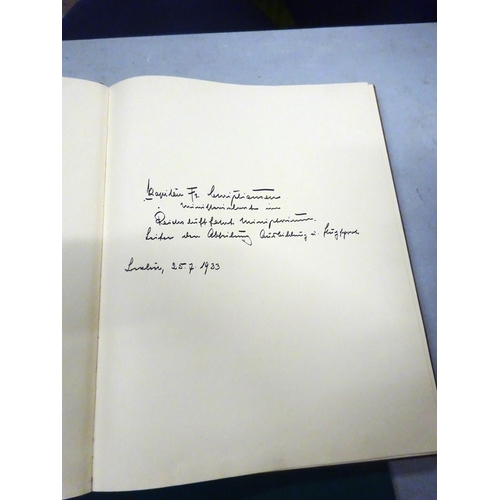 Kapitän Fr. Christiansen
Ministerialrat im
Reichsluftfahrtministerium.
Leiter der Abteilung Ausbildung u. Flugsport
Berlin, 25.7.1933